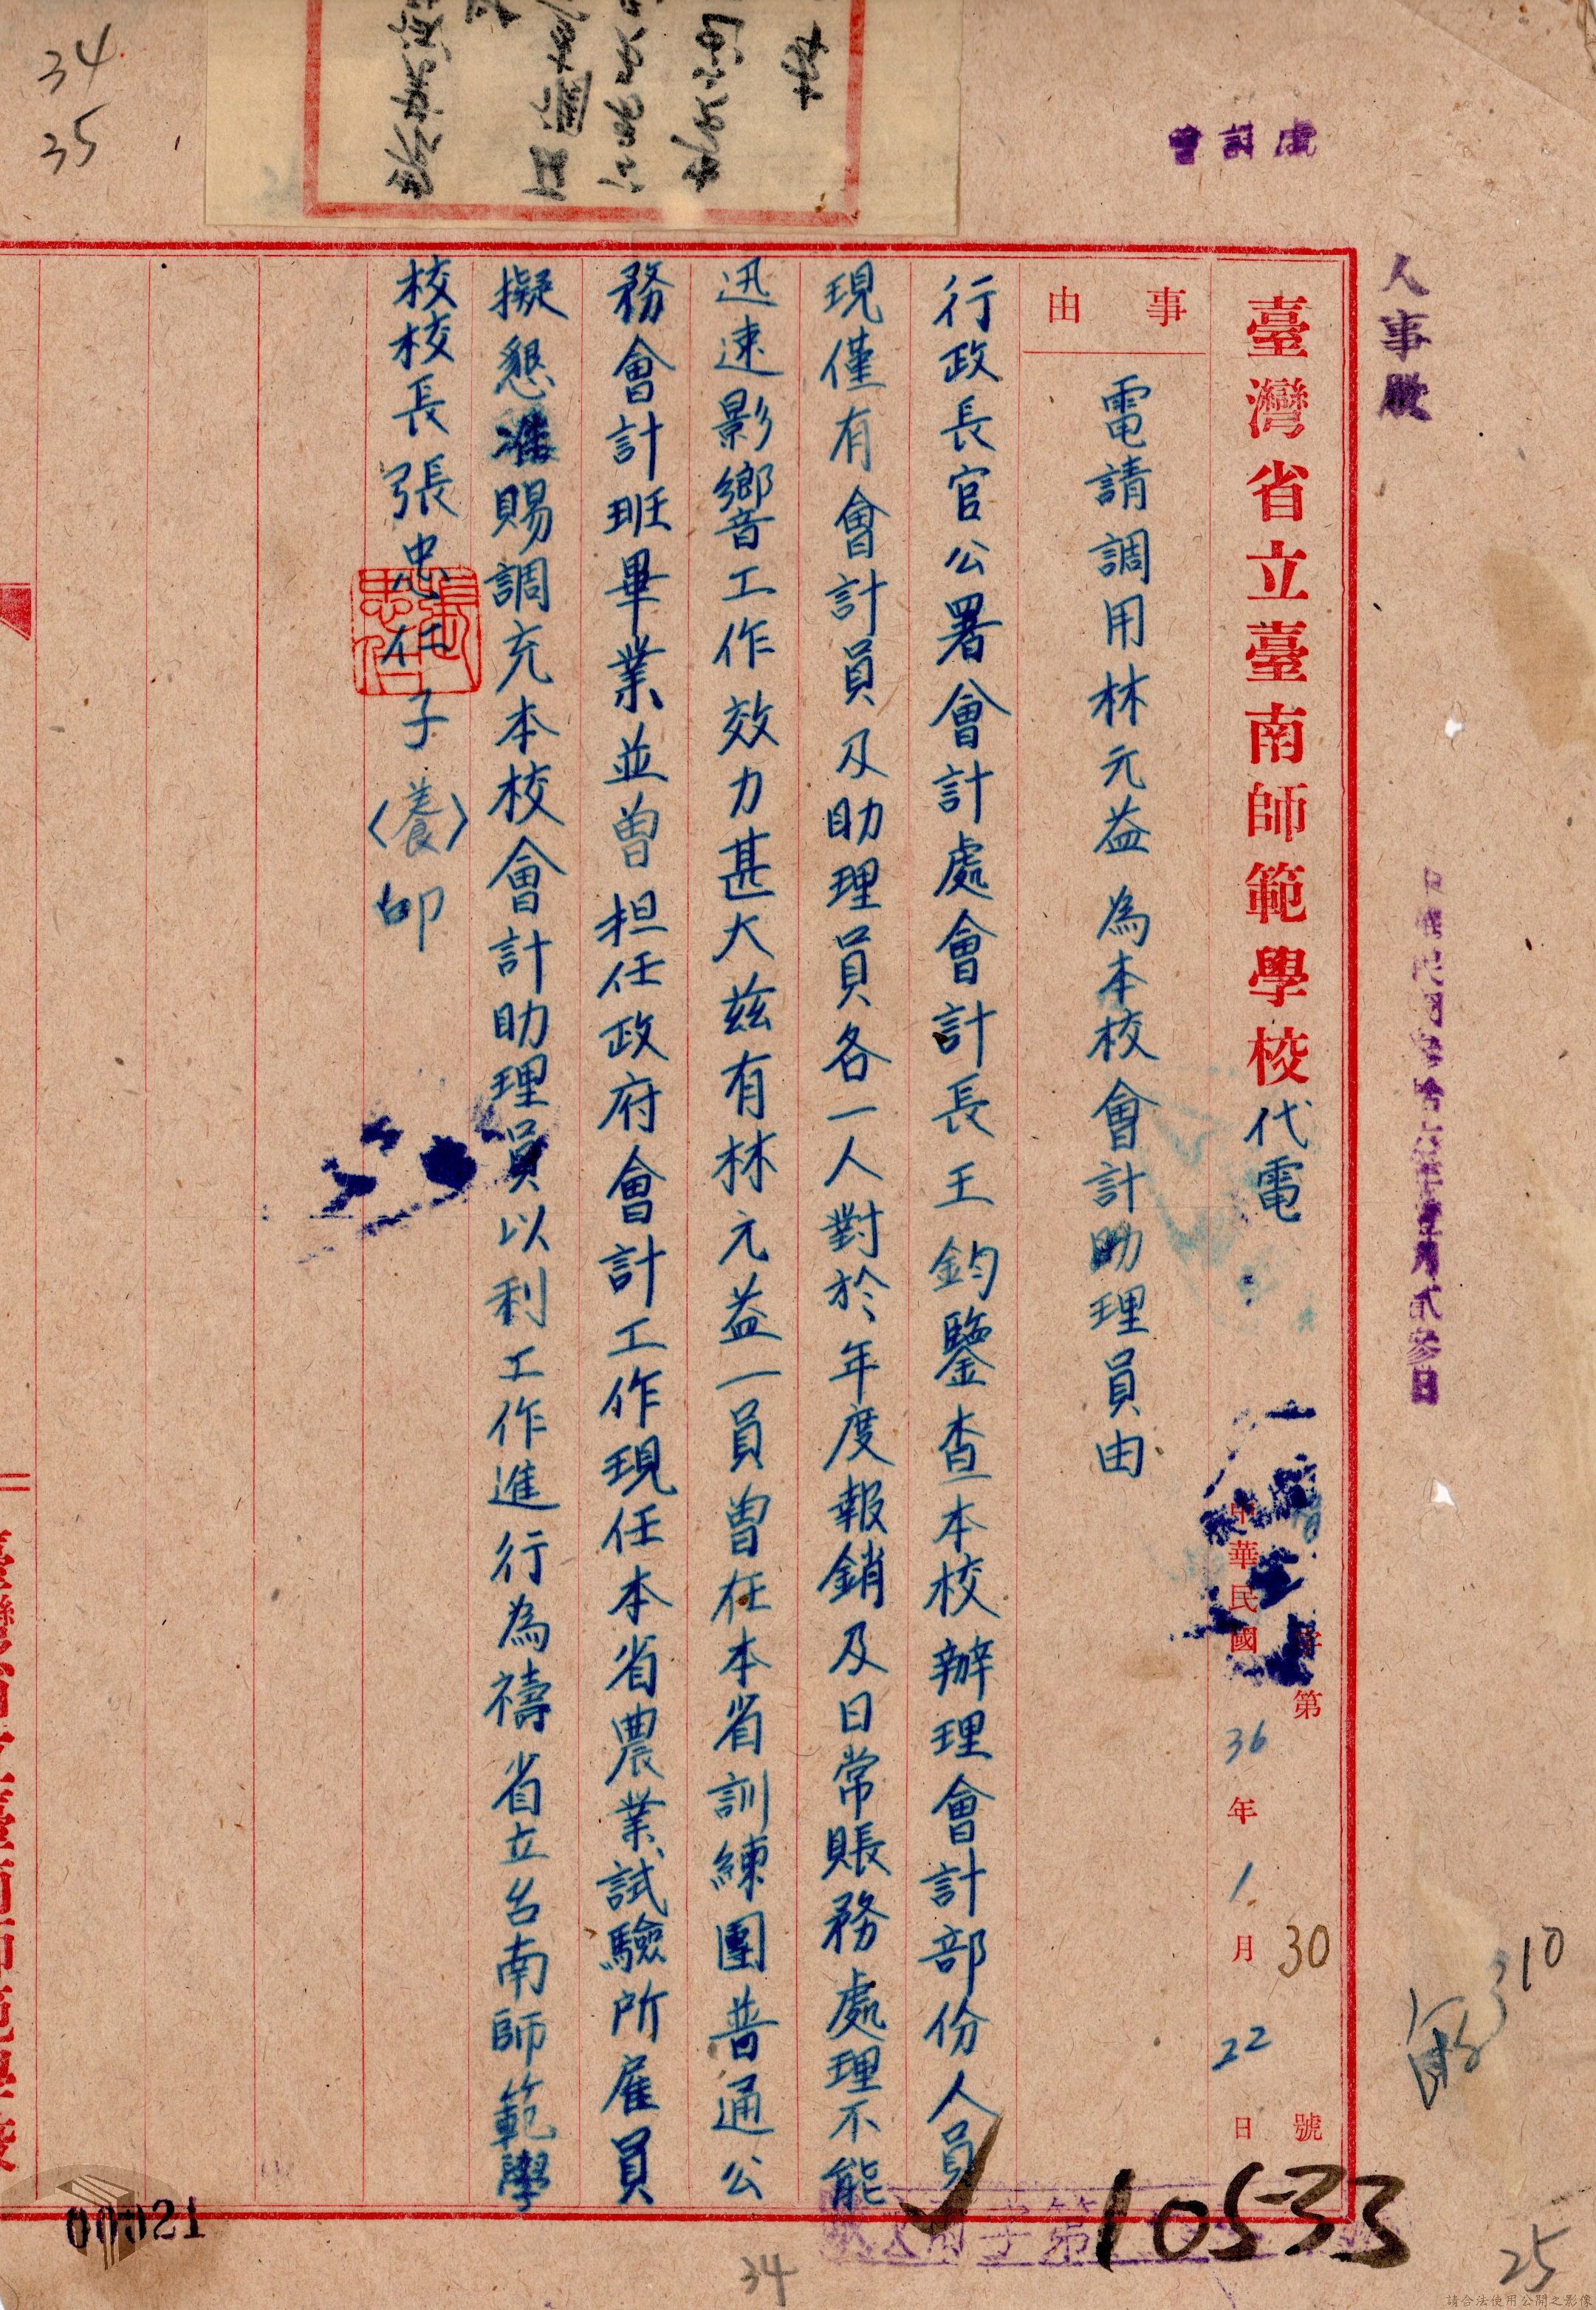 處計會
人事股
臺灣省立臺南師範學校代電
第 號
30
中華民國36年1月22日
事由
電請調用林元益為本校會計助理員由
行政長官公署會計處會計長王鈞鑒查本校辦理會計部份人員
現僅有會計員及助理員各一人對於年度報銷及日常賬務處理不能
迅速影響工作效力甚大茲有林元益一員曾在本省訓練團普通公
務會計班畢業並曾担任政府會計工作現任本省農業試驗所雇員
擬懇准賜調充本校會計助理員以利工作進行為禱省立台南師範學
校校長張忠仁子〈養〉印
張忠仁
字第
10533
310
34
35
34
25
00021
請合法使用公開之影像